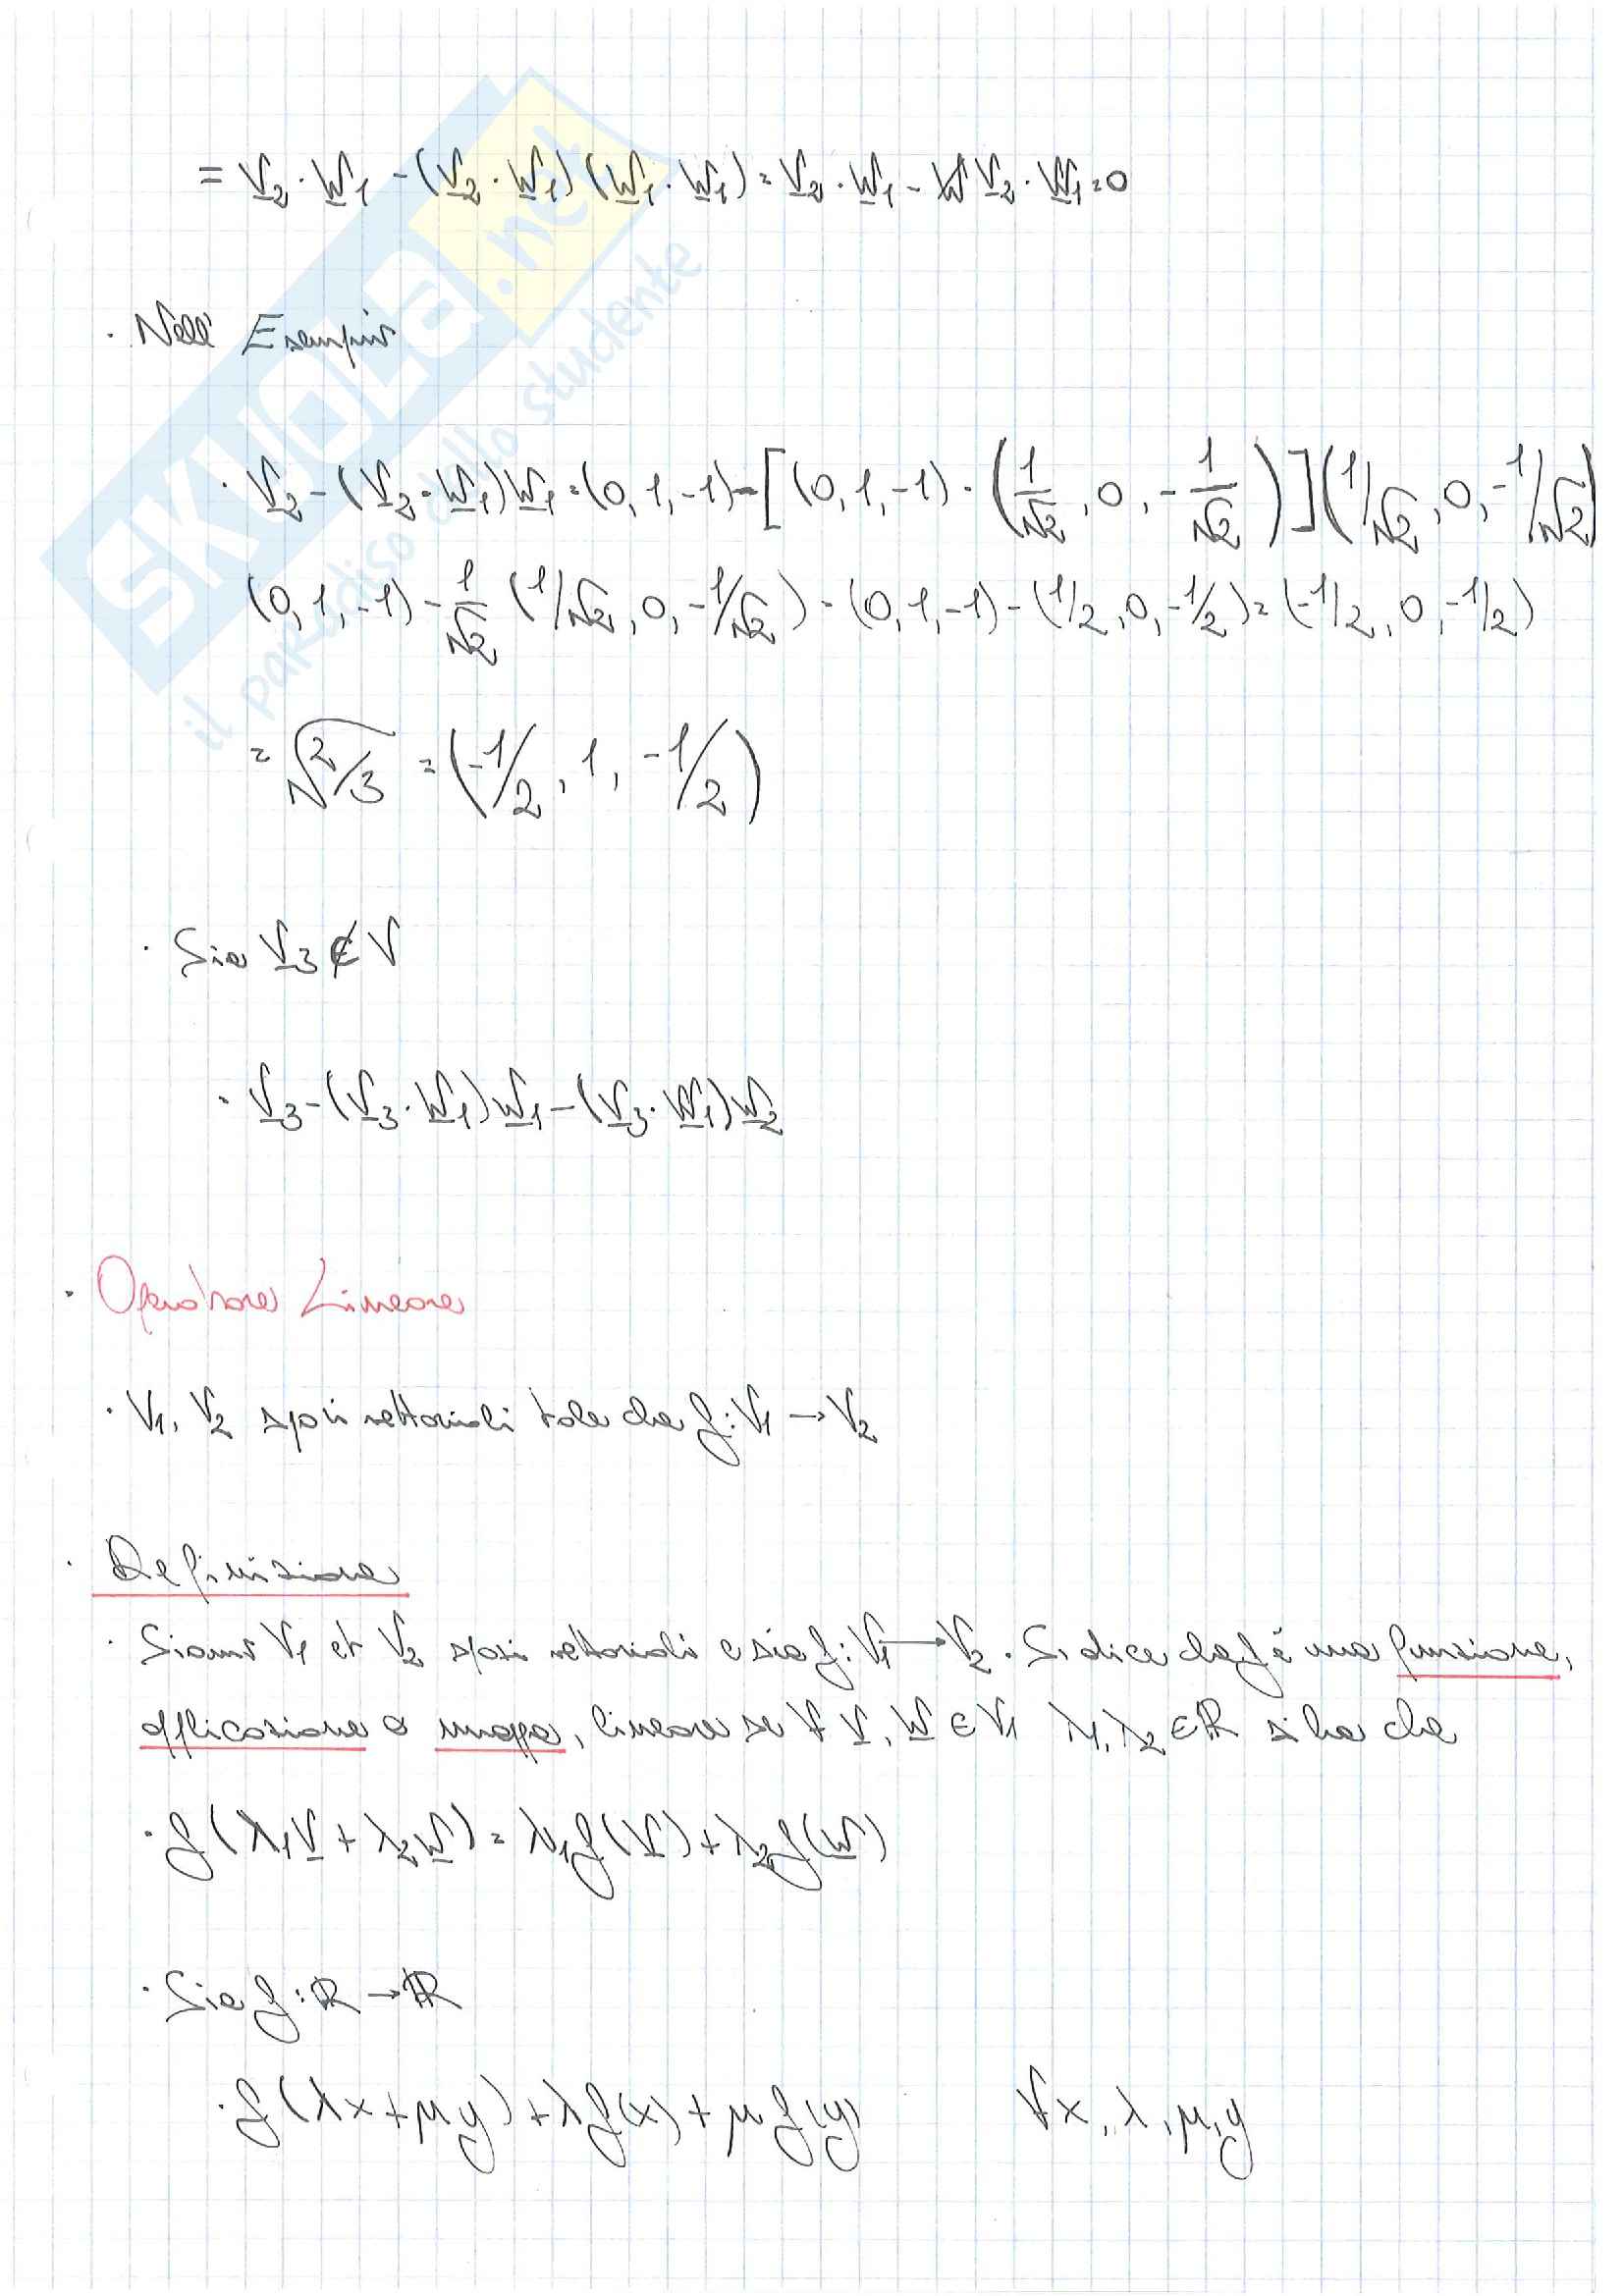 = V₂ · W₁ - (V₂ · W₁) (W₁ · W₁) = V₂ · W₁ - V₂ · W₁ = 0
· Nell' Esempio
· V₂ - (V₂ · W₁) W₁ = (0, 1, -1) - [(0, 1, -1) · (1/√2, 0, -1/√2)] (1/√2, 0, -1/√2)
(0, 1, -1) - 1/√2 (1/√2, 0, -1/√2) = (0, 1, -1) - (1/2, 0, -1/2) = (-1/2, 0, -1/2)
= √2/3 = (-1/2, 1, -1/2)
· Sia V₃ ∉ V
· V₃ - (V₃ · W₁) W₁ - (V₃ · W₁) W₂
· Operatore Lineare
· V₁, V₂ spazi vettoriali tale che f: V₁ → V₂
· Definizione
· Siano V₁ et V₂ spazi vettoriali e sia f: V₁ → V₂. Si dice che f è una funzione,
applicazione o mappa, lineare se ∀ V, W ∈ V₁ λ₁, λ₂ ∈ ℝ si ha che
· f(λ₁V + λ₂W) = λ₁f(V) + λ₂f(W)
· Sia f: ℝ → ℝ
· f(λx + μy) + λf(x) + μf(y) ∀x, λ, μ, y
SKUOLA.net
il paradiso dello studente